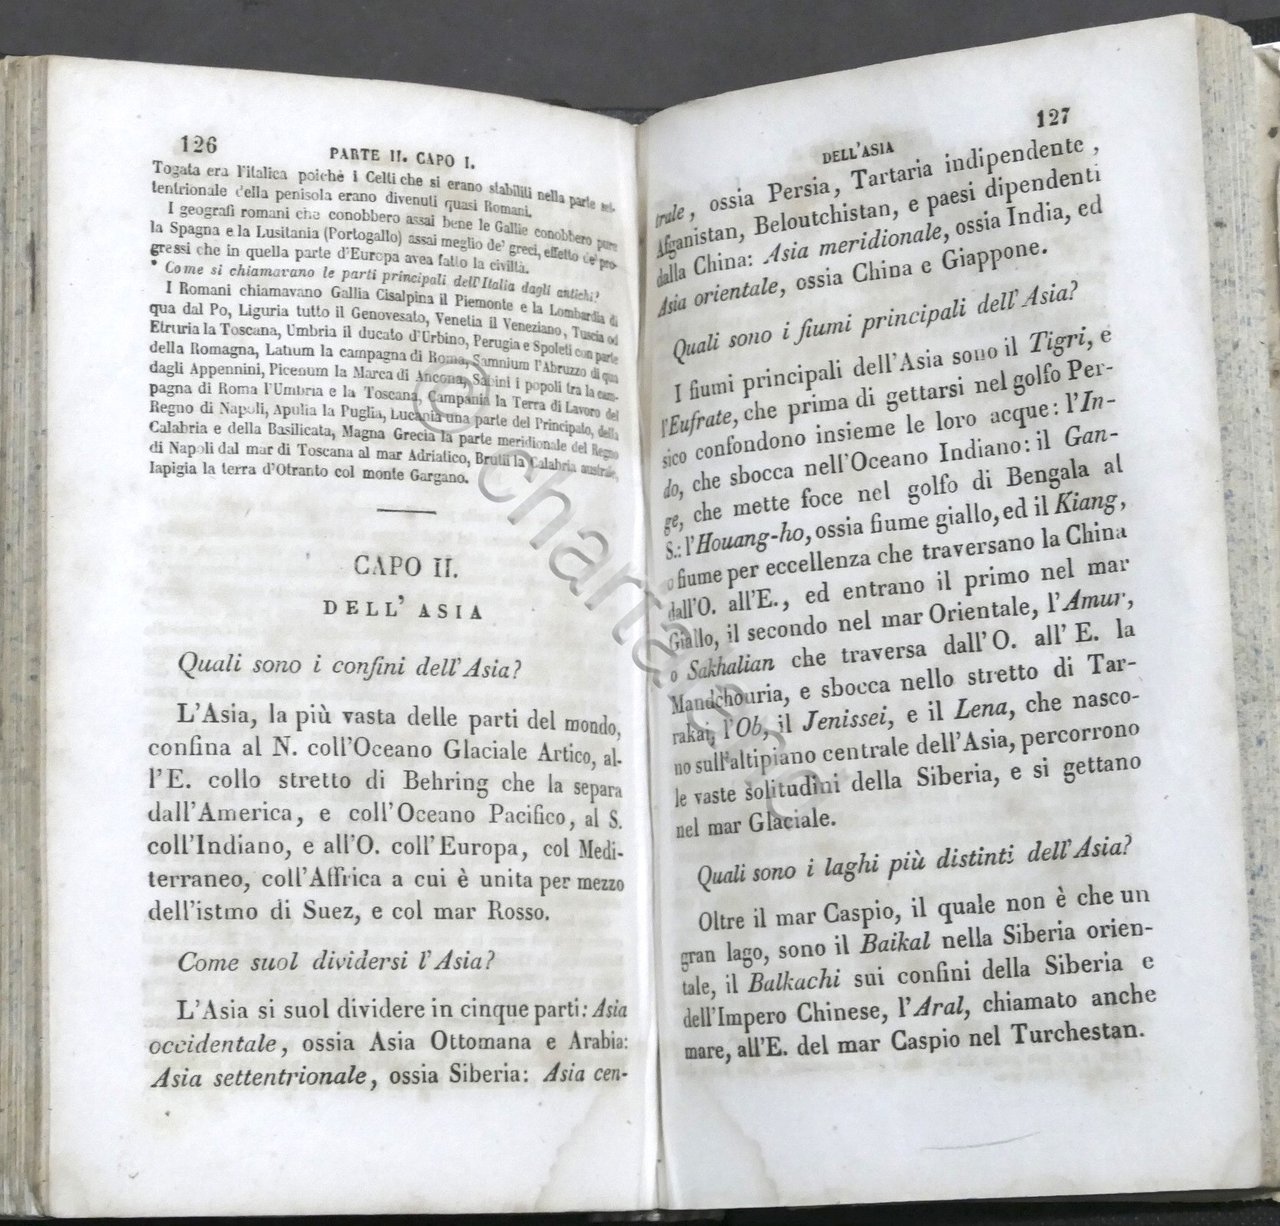 126
PARTE II. CAPO I.
Togata era l'italica poichè i Celti che si erano stabiliti nella parte set-
tentrionale della penisola erano divenuti quasi Romani.
I geografi romani che conobbero assai bene le Gallie conobbero pure
la Spagna e la Lusitania (Portogallo) assai meglio de' greci, effetto de' pro-
gressi che in quella parte d'Europa avea fatto la civiltà.
* Come si chiamavano le parti principali dell'Italia dagli antichi?
I Romani chiamavano Gallia Cisalpina il Piemonte e la Lombardia di
qua dal Po, Liguria tutto il Genovesato, Venetia il Veneziano, Tuscia od
Etruria la Toscana, Umbria il ducato d'Urbino, Perugia e Spoleti con parte
della Romagna, Latium la campagna di Roma, Samnium l'Abruzzo di qua
dagli Appennini, Picenum la Marca di Ancona, Sabini i popoli tra la cam-
pagna di Roma l'Umbria e la Toscana, Campania la Terra di Lavoro del
Regno di Napoli, Apulia la Puglia, Lucania una parte del Principato, della
Calabria e della Basilicata, Magna Grecia la parte meridionale del Regno
di Napoli dal mar di Toscana al mar Adriatico, Brutii la Calabria australe,
Iapigia la terra d'Otranto col monte Gargano.
CAPO II.
DELL' ASIA
Quali sono i confini dell'Asia?
L'Asia, la più vasta delle parti del mondo,
confina al N. coll'Oceano Glaciale Artico, al-
l'E. collo stretto di Behring che la separa
dall'America, e coll'Oceano Pacifico, al S.
coll'Indiano, e all'O. coll'Europa, col Medi-
terraneo, coll'Affrica a cui è unita per mezzo
dell'istmo di Suez, e col mar Rosso.
Come suol dividersi l'Asia?
L'Asia si suol dividere in cinque parti: Asia
occidentale, ossia Asia Ottomana e Arabia:
Asia settentrionale, ossia Siberia: Asia cen-
127
DELL'ASIA
trale, ossia Persia, Tartaria indipendente,
Afganistan, Beloutchistan, e paesi dipendenti
dalla China: Asia meridionale, ossia India, ed
Asia orientale, ossia China e Giappone.
Quali sono i fiumi principali dell'Asia?
I fiumi principali dell'Asia sono il Tigri, e
l'Eufrate, che prima di gettarsi nel golfo Per-
sico confondono insieme le loro acque: l'In-
do, che sbocca nell'Oceano Indiano: il Gan-
ge, che mette foce nel golfo di Bengala al
S.: l'Houang-ho, ossia fiume giallo, ed il Kiang,
o fiume per eccellenza che traversano la China
dall'O. all'E., ed entrano il primo nel mar
Giallo, il secondo nel mar Orientale, l'Amur,
o Sakhalian che traversa dall'O. all'E. la
Mandchouria, e sbocca nello stretto di Tar-
rakai, l'Ob, il Jenissei, e il Lena, che nasco-
no sull'altipiano centrale dell'Asia, percorrono
le vaste solitudini della Siberia, e si gettano
nel mar Glaciale.
Quali sono i laghi più distinti dell'Asia?
Oltre il mar Caspio, il quale non è che un
gran lago, sono il Baikal nella Siberia orien-
tale, il Balkachi sui confini della Siberia e
dell'Impero Chinese, l'Aral, chiamato anche
mare, all'E. del mar Caspio nel Turchestan.